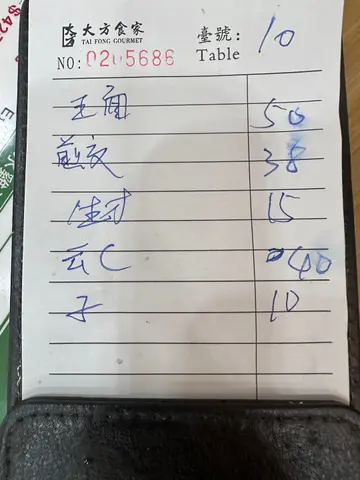 大方食家
TAI FONG GOURMET
臺號:
Table 10
NO: 0205686
王面 50
煎交 38
生才 15
云C 40
子 10